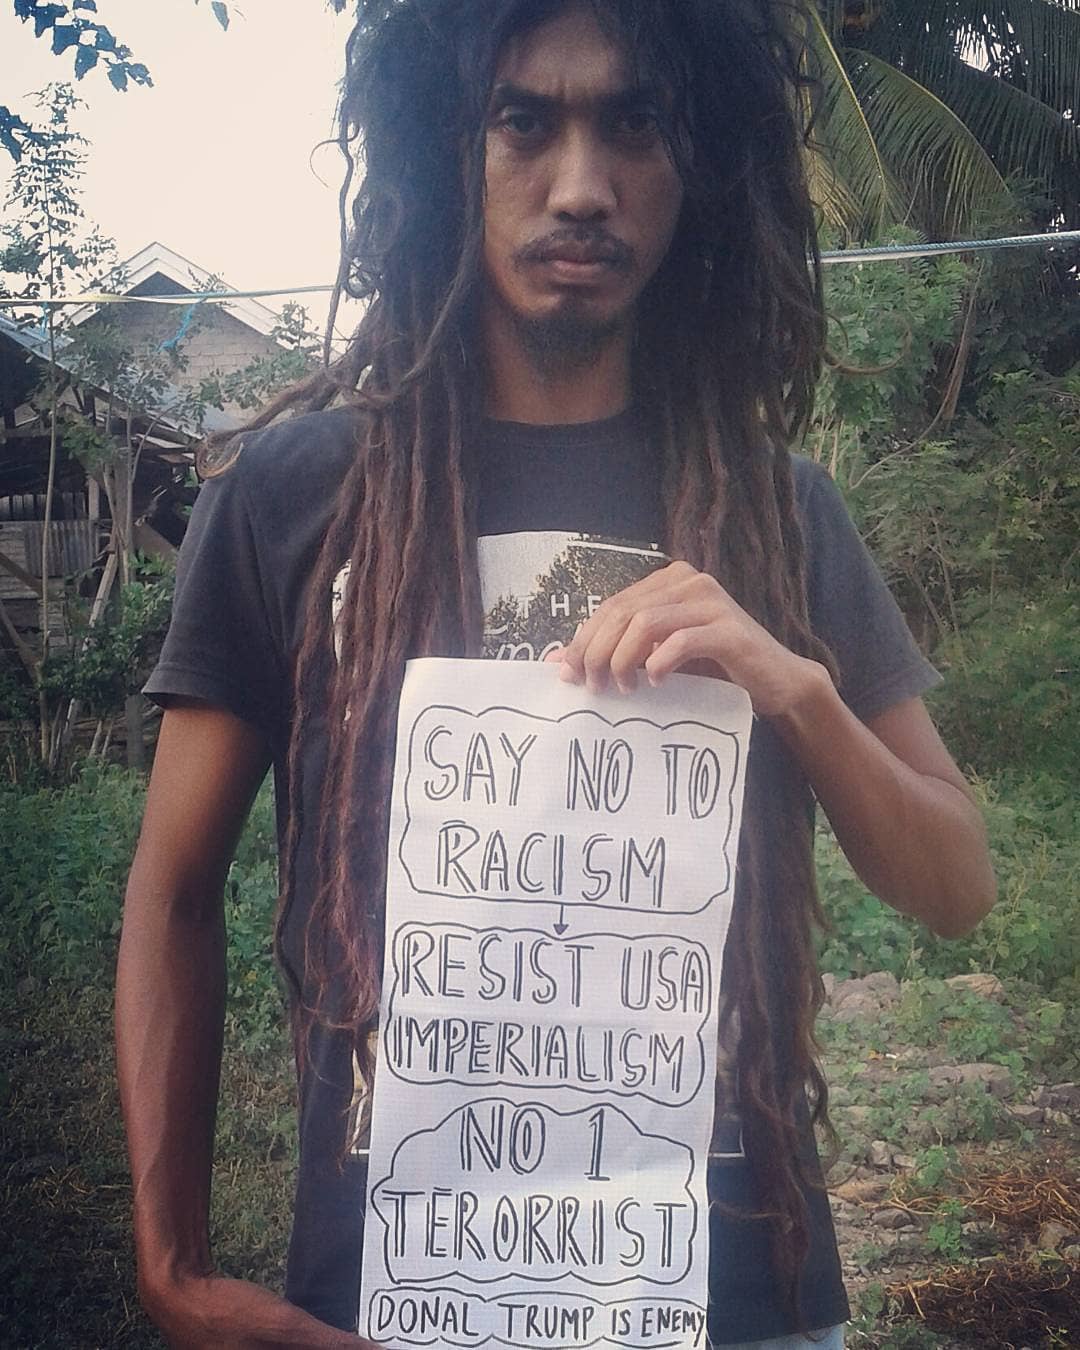 THE
SAY NO TO
RACISM
RESIST USA
IMPERIALISM
NO 1
TERORRIST
DONAL TRUMP IS ENEMY